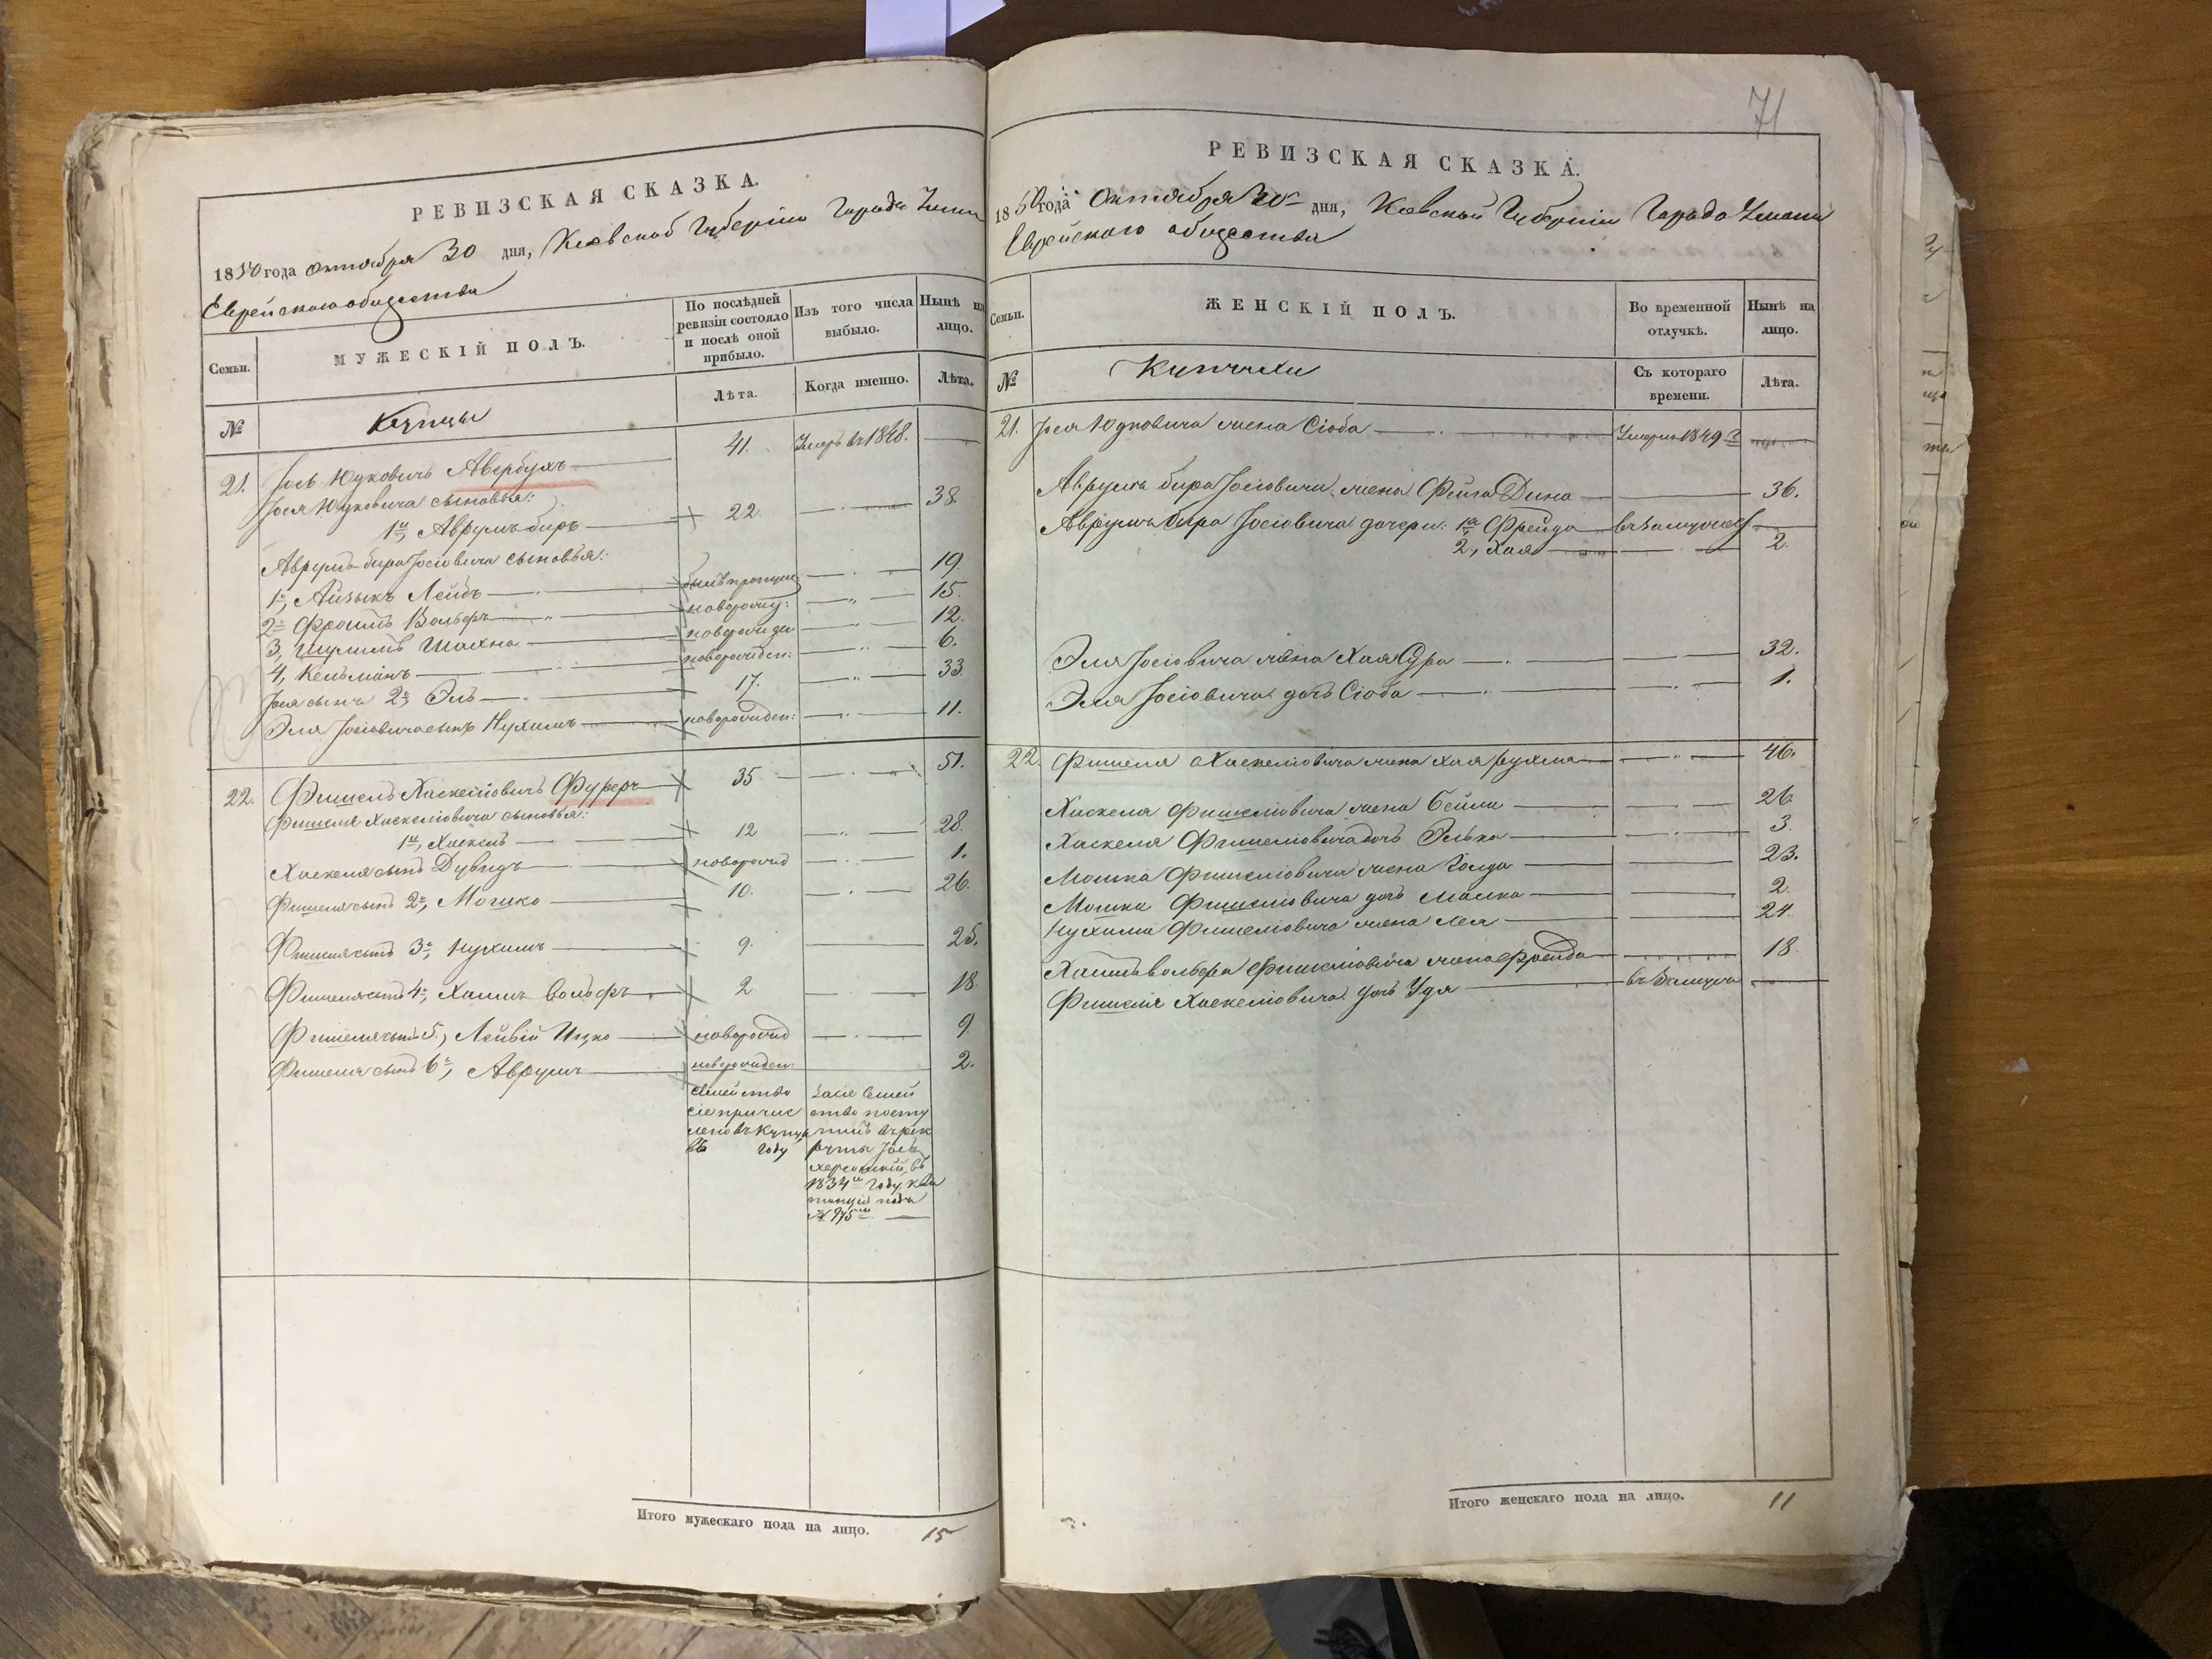 РЕВИЗСКАЯ СКАЗКА.
1850 года Октября 30 дня, Киевской Губерніи Города Умани
Еврейского общества
Семьи.
МУЖЕСКІЙ ПОЛЪ.
По послѣдней ревизіи состояло и послѣ оной прибыло.
Изъ того числа выбыло.
Нынѣ на лицо.
№
Купцы
Лѣта.
Когда именно.
Лѣта.
21. Іось Юдковичъ Авербухъ 41. Умеръ въ 1848.
Іося Юдковича сыновья:
1й, Аврумъ-биръ 22. 38.
Аврумъ-бира Іосіовича сыновья:
1й, Айзыкъ Лейбъ былъ пропущен: 19.
2й Фроимъ Вольфъ новорожд: 15.
3, Шулимъ Шахна новорожден 12.
4, Кельманъ новорожден: 6.
Іося сынъ 2й Эль 17. 33
Эля Іосіовича сынъ Нухимъ новорожден: 11.
22. Фишель Хаскеліовичъ Фуреръ 35. 51.
Фишеля Хаскеліовича сыновья:
1й, Хаскель 12 28.
Хаскеля сынъ Дувидъ новорожд 1.
Фишеля сынъ 2й, Мошко 10. 26.
Фишеля сынъ 3й, Нухимъ 9. 25.
Фишеля сынъ 4й, Хаимъ Вольфъ 2 18
Фишеля сынъ 5., Лейвій Ицко новорожд 9.
Фишеля сынъ 6й, Аврумъ новорожден: 2.
Семейство
сіе причис
лено въ Купцы
въ году
За сіе Семей
ство посту
пилъ въ рек
руты Іось
Херсонскій, въ
1834м году, кви
танція
№ 975м
Итого мужескаго пола на лицо. 15
71
РЕВИЗСКАЯ СКАЗКА.
1850 года Октября 30 дня, Киевской Губерніи Города Умани
Еврейского общества
Семьи.
ЖЕНСКІЙ ПОЛЪ.
Во временной отлучкѣ.
Нынѣ на лицо.
№
Купчихи
Съ котораго времени.
Лѣта.
21. Іося Юдковича жена Сіоба Умерла 1849 г
Аврумъ бира Іосіовича жена Фейга Дина 36.
Аврумъ бира Іосіовича дочери: 1я Фрейда въ замужест
2, Хая 2.
Эля Іосіовича жена Хая Сура 32.
Эля Іосіовича дочь Сіоба 1.
22. Фишеля Хаскеліовича жена Хая Рухля 46.
Хаскеля Фишеліовича жена Бейла 26
Хаскеля Фишеліовича дочь Элька 3.
Мошка Фишеліовича жена Голда 23.
Мошка Фишеліовича дочь Малка 2.
Нухима Фишеліовича жена Лея 24.
Хаимъ Вольфа Фишеліовича жена Фрейда 18.
Фишеля Хаскеліовича дочь Удя въ Замуж
Итого женскаго пола на лицо. 11